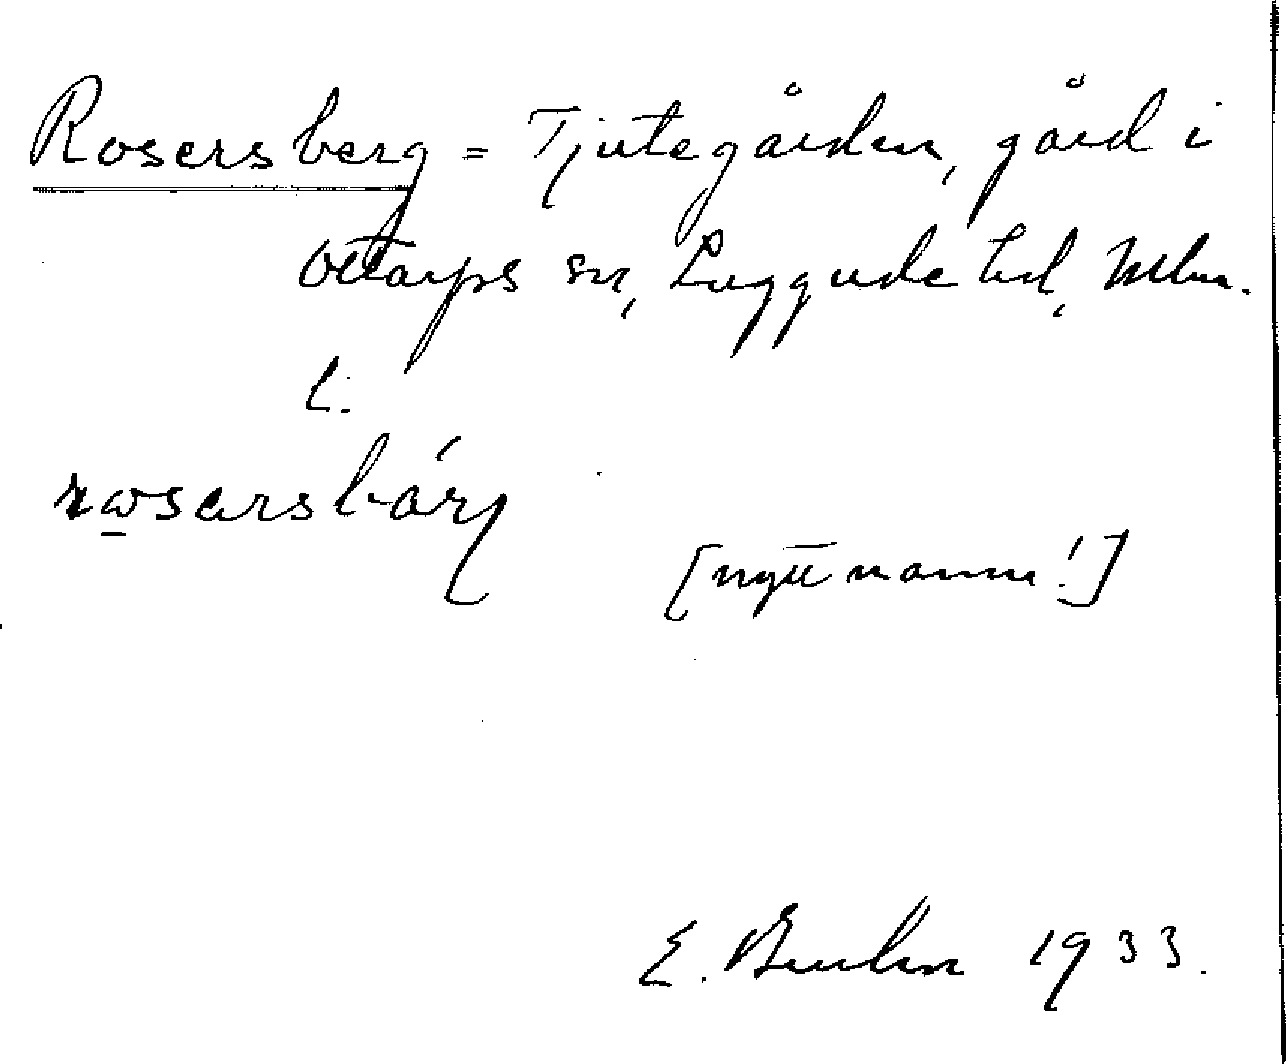 Rosersberg = Tjutegården, gård i
Ottarps sn, Luggude hd, Mlm.
l.
[nytt namn!]
E. Bruhn 1933.